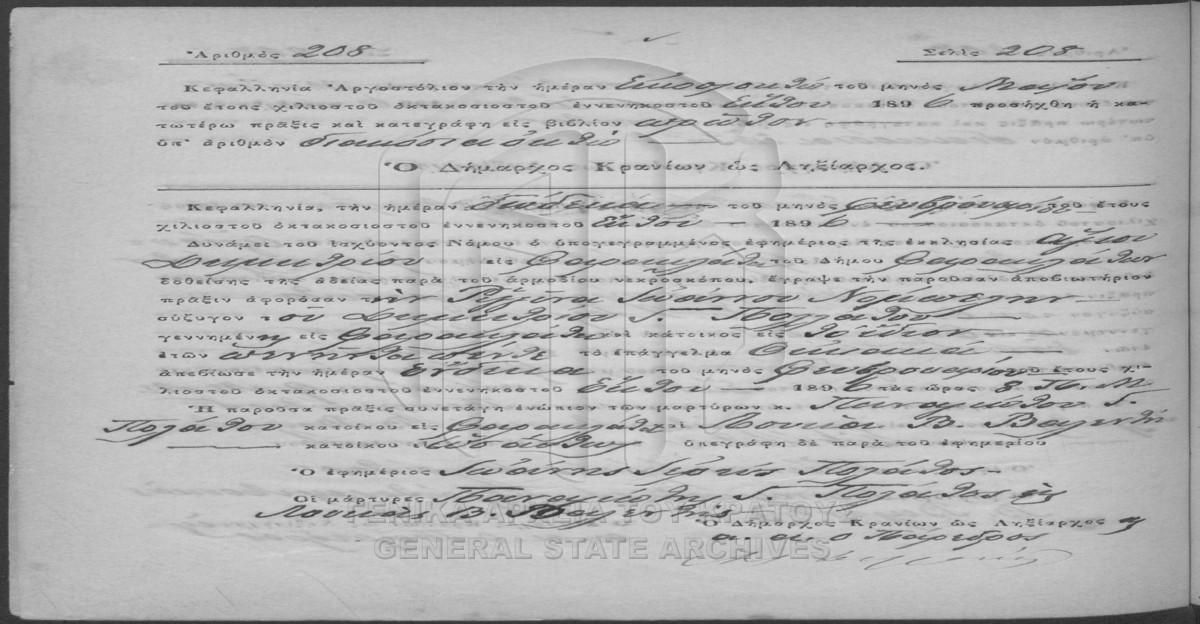 Ἀριθμὸς 208 Σελὶς 208
Κεφαλληνία Ἀργοστόλιον τὴν ἡμέραν Εἰκοστ ὀκτώ τοῦ μηνὸς Μαΐου
τοῦ ἔτους χιλιοστοῦ ὀκτακοσιοστοῦ ἐννενηκοστοῦ Ἕκτου 1896 προσήχθη ἡ κα-
τωτέρω πρᾶξις καὶ κατεγράφη εἰς βιβλίον πρῶτον
ὑπ' ἀριθμὸν διακόσια ὀκτώ
Ὁ Δήμαρχος Κρανίων ὡς Ληξίαρχος.
Κεφαλληνία, τὴν ἡμέραν δώδεκα τοῦ μηνὸς Φεβρουαρίου τοῦ ἔτους
χιλιοστοῦ ὀκτακοσιοστοῦ ἐννενηκοστοῦ Ἕκτου 1896
Δυνάμει τοῦ ἰσχύοντος Νόμου ὁ ὑπογεγραμμένος ἐφημέριος τῆς ἐκκλησίας Ἁγίου
Δημητρίου εἰς Φαρακλάτα τοῦ Δήμου Φαρακλάτων
δοθείσης τῆς ἀδείας παρὰ τοῦ ἁρμοδίου νεκροσκόπου, ἔγραψε τὴν παροῦσαν ἀποβιωτήριον
πρᾶξιν ἀφορῶσαν τὴν Ἰωάννου
σύζυγον τοῦ Δημητρίου Γ. Πολλάτου
γεννημένη εἰς Φαρακλάτα καὶ κάτοικος εἰς τὸ ἴδιον
ἐτῶν πενῆντα πέντε τὸ ἐπάγγελμα Οἰκιακά
ἀπεβίωσε τὴν ἡμέραν ἕνδεκα τοῦ μηνὸς Φεβρουαρίου τοῦ ἔτους χι-
λιοστοῦ ὀκτακοσιοστοῦ ἐννενηκοστοῦ Ἕκτου 1896 τὰς ὥρας 8 π. μ.
Ἡ παροῦσα πρᾶξις συνετάγη ἐνώπιον τῶν μαρτύρων κ. Παναγιώτου Γ.
Πολάτου κατοίκου εἰς Φαρακλάτα καὶ Λουκᾶ Β. Βαλεντή
κατοίκου εἰς ὑπεγράφη δὲ παρὰ τοῦ ἐφημερίου
Ὁ ἐφημέριος Ἰωάννης Ἱερεὺς Πολάτος
Οἱ μάρτυρες Παναγιώτης Γ. Πολάτος
Λουκᾶς Β. Βαλεντής
Ὁ Δήμαρχος Κρανίων ὡς Ληξίαρχος
ὁ Πάρεδρος
ΓΕΝΙΚΑ ΑΡΧΕΙΑ ΤΟΥ ΚΡΑΤΟΥΣ
GENERAL STATE ARCHIVES